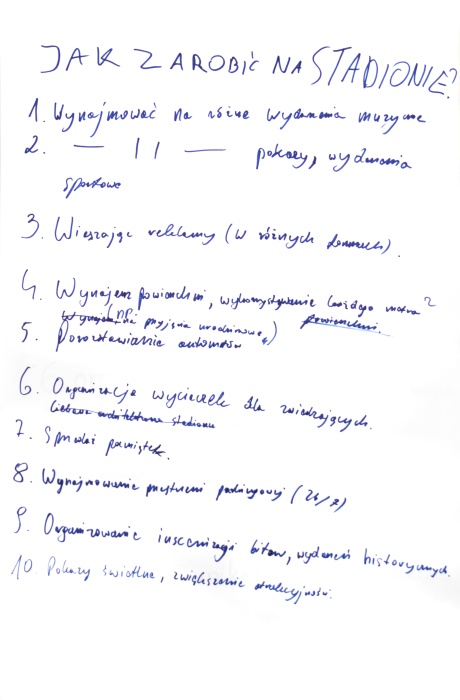 JAK ZAROBIĆ NA STADIONIE?
1. Wynajmować na różne wydarzenia muzyczne
2. — || — pokazy, wydarzenia
sportowe
3. Wieszając reklamy (w różnych formach).
4. Wynajem powierzchni, wykorzystywanie każdego metra²
(np. na przyjęcia urodzinowe) powierzchni.
5. Porozstawianie automatów
6. Organizacja wycieczek dla zwiedzających.
Ciekawa architektura stadionu
7. Sprzedaż pamiątek.
8. Wynajmowanie przestrzeni parkingowej (24/7)
9. Organizowanie inscenizacji bitew, wydarzeń historycznych.
10 Pokazy świetlne, zwiększenie atrakcyjności.